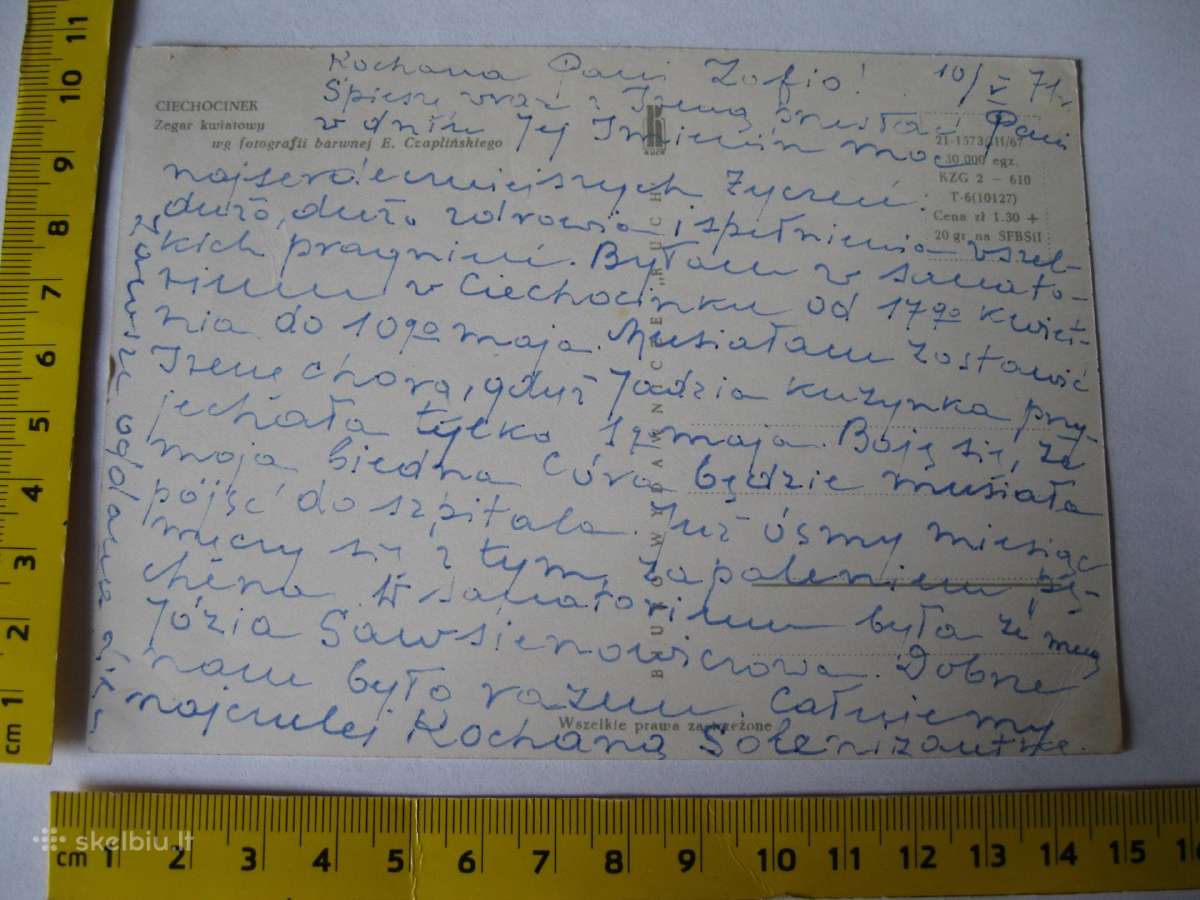 Kochana Pani Zofio! 10/V 71r
CIECHOCINEK
Zegar kwiatowy
wg fotografii barwnej E. Czaplińskiego
RUCH
21-1573/III/67
30 000 egz.
KZG 2 — 610
T-6(10127)
Cena zł 1.30 +
20 gr. na SFBSiI
Spieszę wraz z Ireną przesłać Pani
w dniu Jej Imienin moc
najserdeczniejszych życzeń.
dużo, dużo zdrowia i spełnienia wszel-
kich pragnień. Byłam w sanato-
rium w Ciechocinku od 17go kwiet-
nia do 10go maja. Musiałam zostawić
Irenę chorą, gdyż Jadzia kuzynka przy-
jechała tylko 1go maja. Boję się, że
moja biedna córa będzie musiała
pójść do szpitala. Już ósmy miesiąc
męczy się z tym zapaleniem pę-
cherza. W sanatorium była ze mną
Józia Sawsienowiczowa. Dobrze
nam było razem. Całujemy
najczulej Kochaną Solenizantkę.
BIURO WYDAWNICZE „RUCH"
Wszelkie prawa zastrzeżone
cm 1 2 3 4 5 6 7 8 9 10 11
cm 1 2 3 4 5 6 7 8 9 10 11 12 13 14 15 16
skelbiu.lt